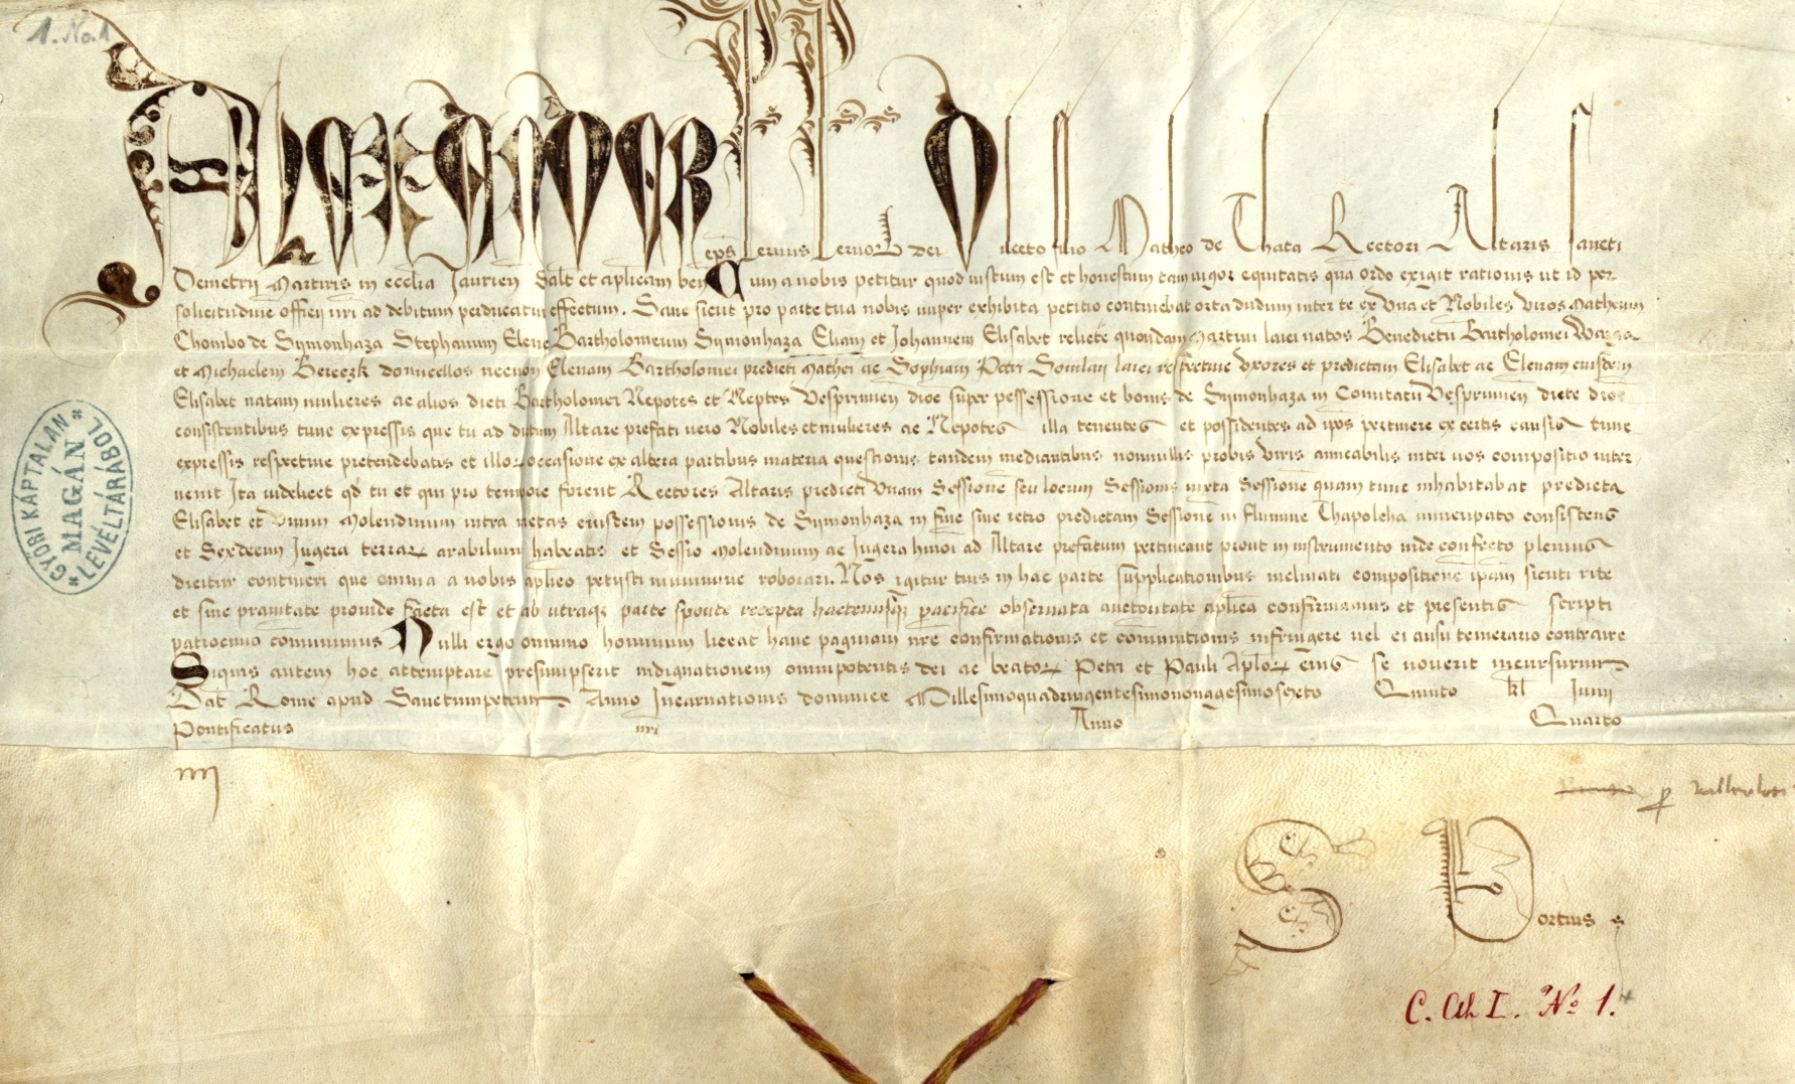 1. No. 1
ALEXANDER eps servus servoꝝ dei Dilecto filio Matheo de Thata Rectori Altaris sancti
Demetrij Martiris in ecclia Jaurien Salt et aplicam ben Cum a nobis petitur quod iustum est et honestum tam uigor equitatis qua ordo exigit rationis ut id per
solicitudine officij nri ad debitum perducatur effectum. Sane sicut pro parte tua nobis nuper exhibita petitio continebat orta dudum inter te ex Una et Nobiles Viros Matheum
Chombo de Symonhaza Stephanum Elene Bartholomeum Symonhaza Eliam et Johannem Elisabet relicte quondam Martini laici natos Benedictu Bartholomei
et Michaelem Bereczk domicellos necnon Elenam Bartholomei predicti Mathei ac Sophiam Petri Somlay laici respective Uxores et predictam Elisabet ac Elenam eiusdem
Elisabet natam mulieres ac alios dicti Bartholomei Nepotes et Neptes Vesprimien dioc super possessione et bonis de Symonhaza in Comitatu Vesprimien dicte dioc
consistentibus tunc expressis que tu ad dictum Altare prefati uero Nobiles et mulieres ac Nepotes illa tenentes et possidentes ad ipos pertinere ex certis causis tunc
expressis respective pretendebatis et illoꝝ occasione ex altera partibus materia questionis tandem mediantibus nonnullis probis Viris amicabilis inter uos compositio inter
uenit Ita uidelicet qd tu et qui pro tempore forent Rectores Altaris predicti Unam Sessione seu locum Sessionis iuxta Sessione quam tunc inhabitabat predicta
Elisabet et Unum Molendinum intra metas eiusdem possessionis de Symonhaza in fine siue retro predictam Sessione in flumine Thapolcha nuncupato consistens
et Sexdecim Jugera terraꝝ arabilium habeatis et Sessio Molendinum ac Jugera hmoi ad Altare prefatum pertineant prout in instrumento inde confecto plenius
dicitur contineri que omnia a nobis aplico petijsti munimine roborari. Nos igitur tuis in hac parte supplicationibus inclinati compositione ipam sicuti rite
et sine prauitate prouide facta est et ab utraqz parte sponte recepta hactenusqz pacifice obseruata auctoritate aplica confirmamus et presentis scripti
patrocinio comunimus Nulli ergo omnino hominum liceat hanc paginam nre confirmationis et comunitionis infringere uel ei ausu temerario contraire
Siquis autem hoc attemptare presumpserit indignationem omnipotentis dei ac beatoꝝ Petri et Pauli Aploꝝ eius se nouerit incursurum
Dat Rome apud Sanctumpetrum Anno Incarnationis dominice Millesimoquadringentesimononagesimosexto Quinto kl Junij
Pontificatus nri Anno Quarto
GYŐRI KÁPTALAN
MAGÁN
LEVÉLTÁRÁBÓL
S Dortius
C. Cth I. No 1.